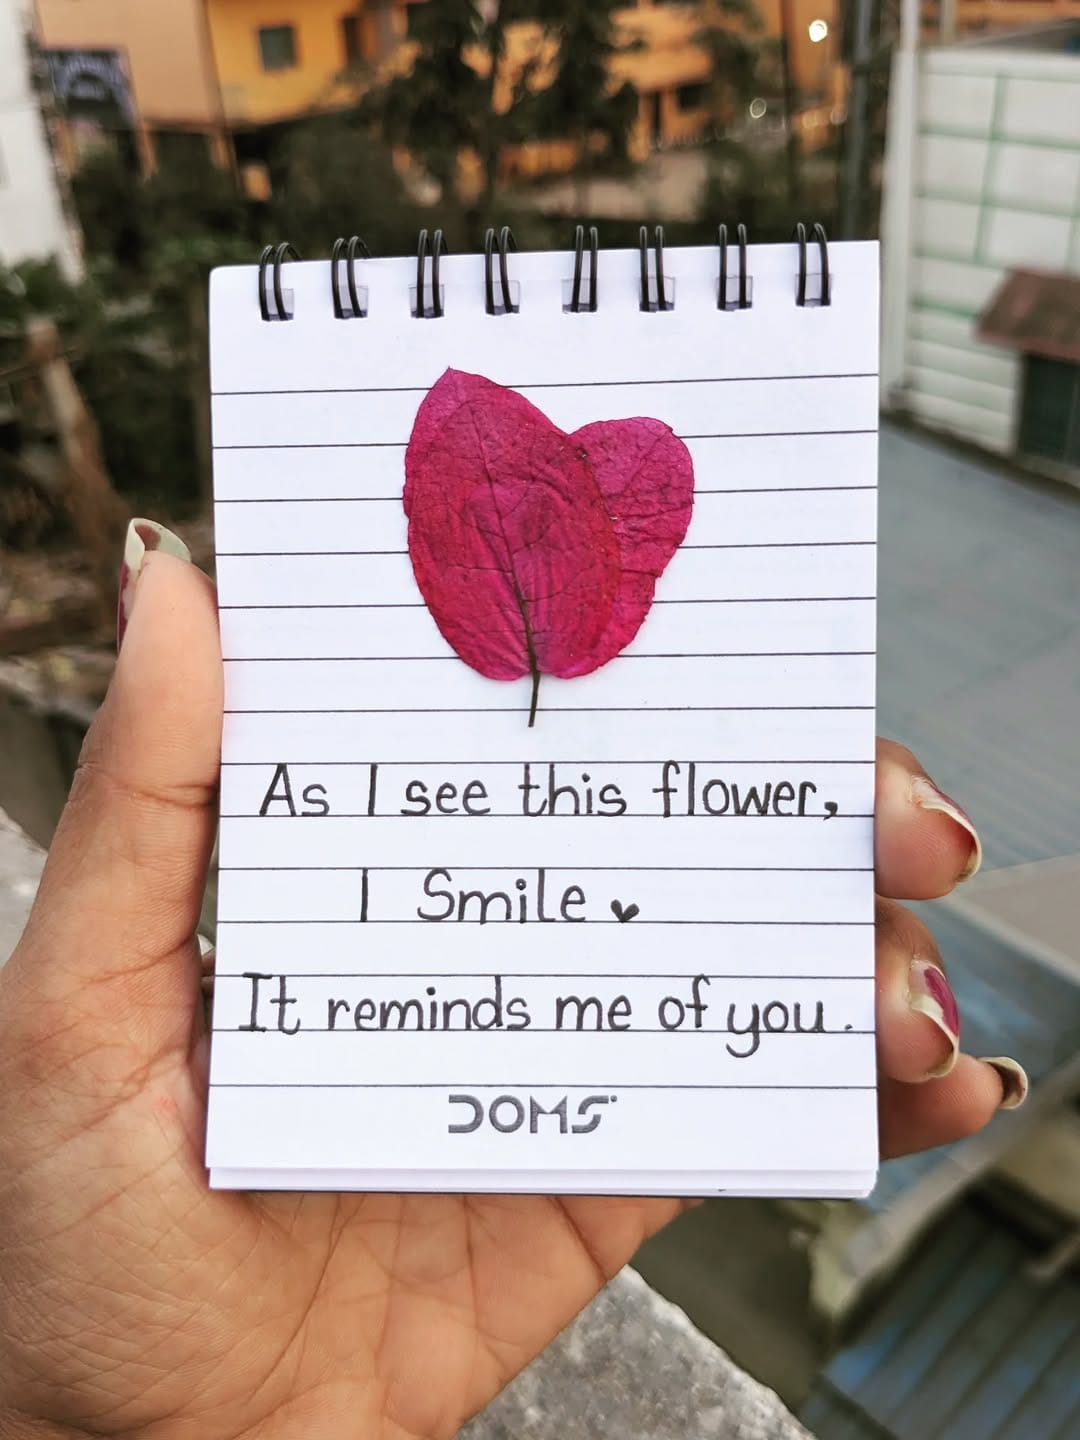 As I see this flower,
I Smile ♥
It reminds me of you.
DOMS